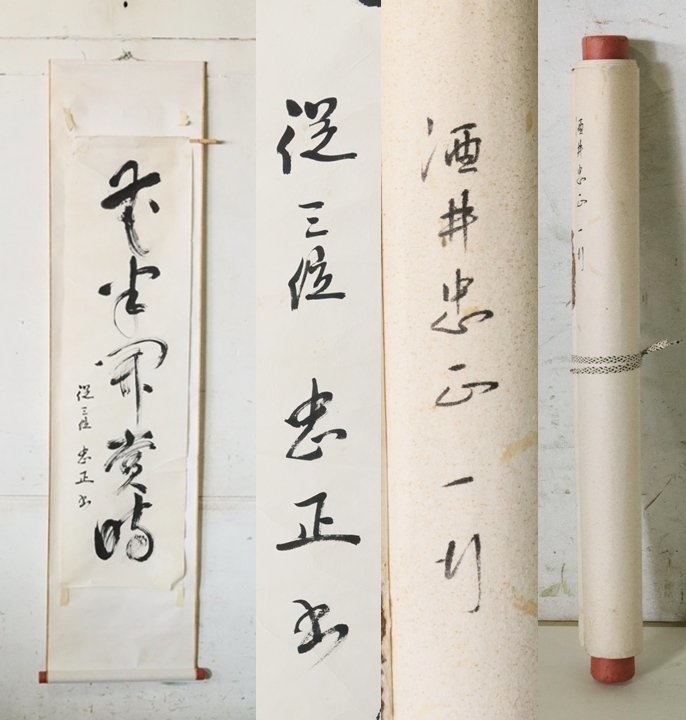 花半開賞時
従三位 忠正書
従三位 忠正書
酒井忠正一行
酒井忠正一行